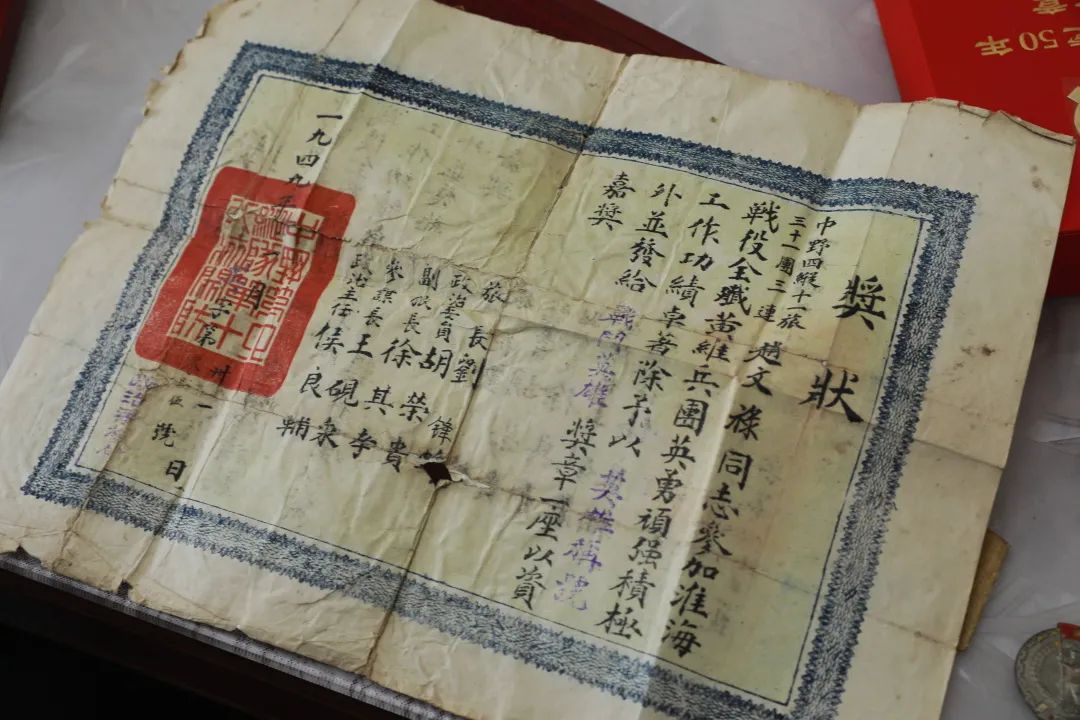 獎狀
中野四縱十一旅
三十一團三連 趙文祿同志參加淮海
戰役全殲黃維兵團英勇頑强積極
工作功績卓著除予以 英雄稱號
外並發給 戰鬥英雄 獎章一座以資
嘉獎
旅長 劉鋒
政治委員 胡榮貴
副旅長 徐其孝
參謀長 王硯泉
政治主任 侯良輔
一九四九年
字第
一
號
日
50年